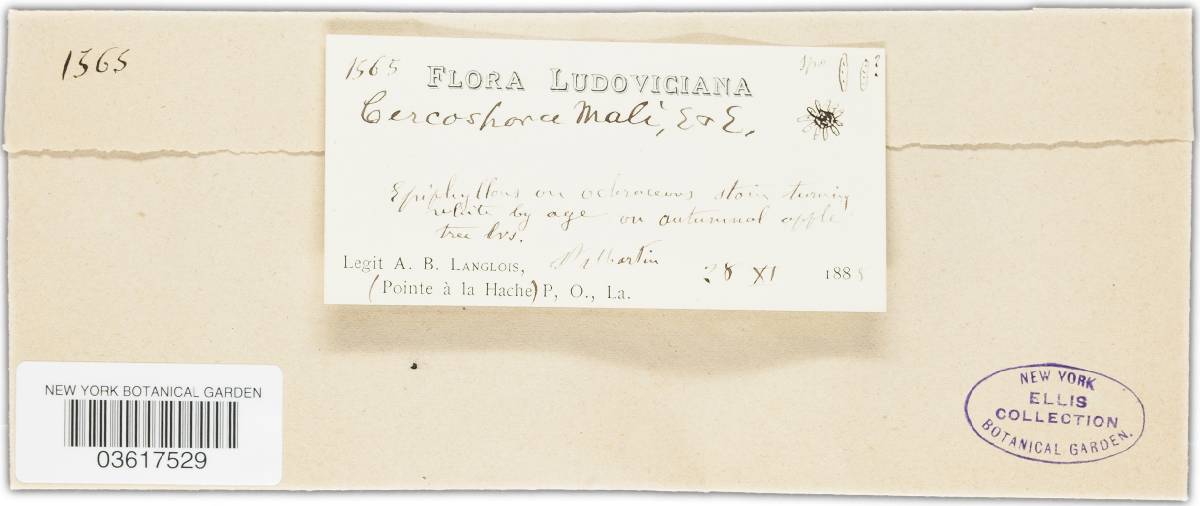 1565
1565 FLORA LUDOVICIANA spo ?
Cercospora Mali, E & E.
Epiphyllous on ochraceous stain turning
white by age on autumnal apple
tree lvs.
Legit A. B. LANGLOIS, Martin 28 XI 1888
(Pointe à la Hache) P, O., La.
NEW YORK BOTANICAL GARDEN
03617529
NEW YORK
ELLIS
COLLECTION
BOTANICAL GARDEN.